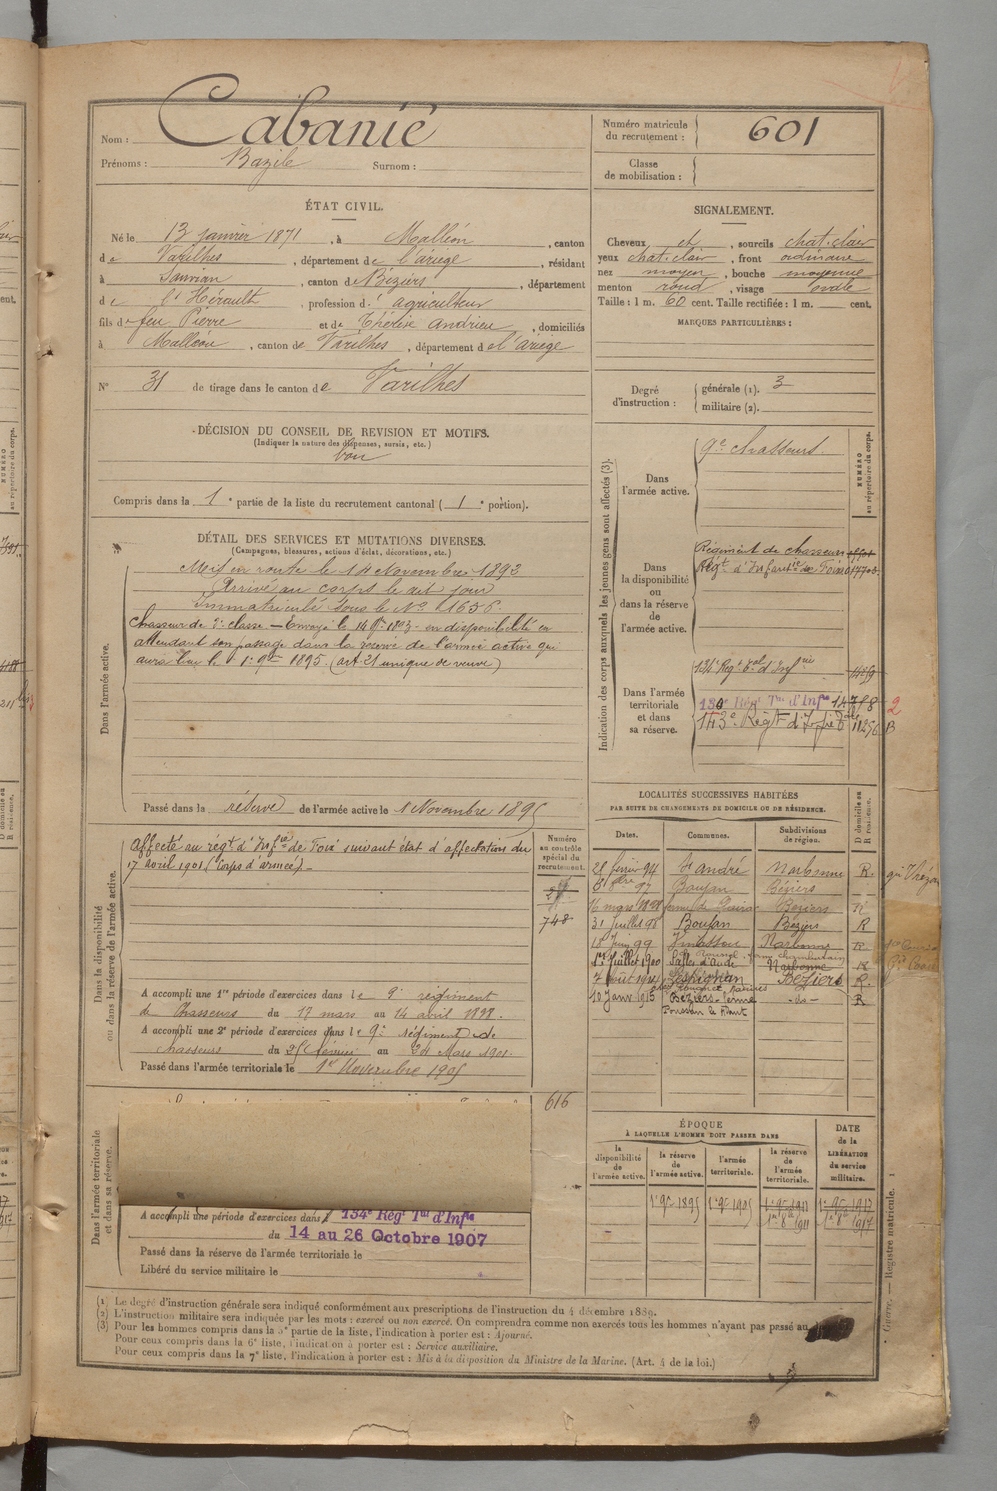 Nom : Cabanié
Prénoms : Bazile Surnom :
Numéro matricule du recrutement : 601
Classe de mobilisation :
ÉTAT CIVIL.
Né le 13 janvier 1871, à Malléon, canton
de Varilhes, département de l'ariège, résidant
à Sauvian, canton de Béziers, département
de l'Hérault, profession d' agriculteur
fils de feu Pierre et de Thérèse Andrieu, domiciliés
à Malléon, canton de Varilhes, département de l'ariège
N° 31 de tirage dans le canton de Varilhes
SIGNALEMENT.
Cheveux et, sourcils chat. clair
yeux chat. clair, front ordinaire
nez moyen, bouche moyenne
menton rond, visage ovale
Taille : 1 m. 60 cent. Taille rectifiée : 1 m. cent.
MARQUES PARTICULIÈRES :
Degré d'instruction : générale (1). 3
militaire (2).
DÉCISION DU CONSEIL DE REVISION ET MOTIFS.
(Indiquer la nature des dispenses, sursis, etc.)
bon
Compris dans la 1e partie de la liste du recrutement cantonal (1e portion).
DÉTAIL DES SERVICES ET MUTATIONS DIVERSES.
(Campagnes, blessures, actions d'éclat, décorations, etc.)
Dans l'armée active.
Mis en route le 14 Novembre 1892
Arrivé au corps le dit jour
Immatriculé sous le N° 1656
Chasseur de 2e classe — Envoyé le 14 9bre 1893 en disponibilité en
attendant son passage dans la réserve de l'armée active qui
aura lieu le 1er 9bre 1895 (art. 21 unique de veuve)
Passé dans la réserve de l'armée active le 1 Novembre 1895
Indication des corps auxquels les jeunes gens sont affectés (3).
NUMÉRO au répertoire du corps.
Dans l'armée active.
9e chasseurs.
Dans la disponibilité ou dans la réserve de l'armée active.
Régiment de chasseurs
Régt d'Infanterie de Foix
Dans l'armée territoriale et dans sa réserve.
134e Régt tal d'Infrie
130e Régt Tal d'Infie 14798 2
143e Régt d'Infie 11256 B
Dans la disponibilité ou dans la réserve de l'armée active.
Affecté au régt d'Infie de Foix suivant état d'affectation du
17 avril 1901 (Corps d'armée) —
Numéro au contrôle spécial du recrutement.
748
A accompli une 1re période d'exercices dans le 9e régiment
de Chasseurs du 17 mars au 14 avril 1898.
A accompli une 2e période d'exercices dans le 9e régiment de
chasseurs du 25 février au 24 Mars 1901.
Passé dans l'armée territoriale le 1er Novembre 1905
616
LOCALITÉS SUCCESSIVES HABITÉES
PAR SUITE DE CHANGEMENTS DE DOMICILE OU DE RÉSIDENCE.
Dates. Communes. Subdivisions de région. D domicile ou R résidence.
28 février 94 St André Narbonne R.
8 97 Boujan Béziers —
16 mars 1898 Béziers R
31 Juillet 98 Boujan Béziers R
18 Juin 99 Vinassan Narbonne R
1er Juillet 1900 Salles d'Aude Narbonne R
7 Août 1904 Lespignan Béziers R.
10 Janv 1915 Béziers - do - R
Dans l'armée territoriale et dans sa réserve.
A accompli une période d'exercices dans l 134e Régt Tal d'Infie
du 14 au 26 Octobre 1907
Passé dans la réserve de l'armée territoriale le
Libéré du service militaire le
ÉPOQUE
À LAQUELLE L'HOMME DOIT PASSER DANS
la disponibilité de l'armée active. la réserve de l'armée active. l'armée territoriale. la réserve de l'armée territoriale. DATE de la LIBÉRATION du service militaire.
1er 9bre 1895 1er 9bre 1905 1er 9bre 1911 1er 9bre 1917
1er 8bre 1911 1er 8bre 1917
(1) Le degré d'instruction générale sera indiqué conformément aux prescriptions de l'instruction du 4 décembre 1889.
(2) L'instruction militaire sera indiquée par les mots : exercé ou non exercé. On comprendra comme non exercés tous les hommes n'ayant pas passé au
(3) Pour les hommes compris dans la 5e partie de la liste, l'indication à porter est : Ajourné.
Pour ceux compris dans la 6e liste, l'indication à porter est : Service auxiliaire.
Pour ceux compris dans la 7e liste, l'indication à porter est : Mis à la disposition du Ministre de la Marine. (Art. 4 de la loi.)
Guerre. — Registre matricule. 1